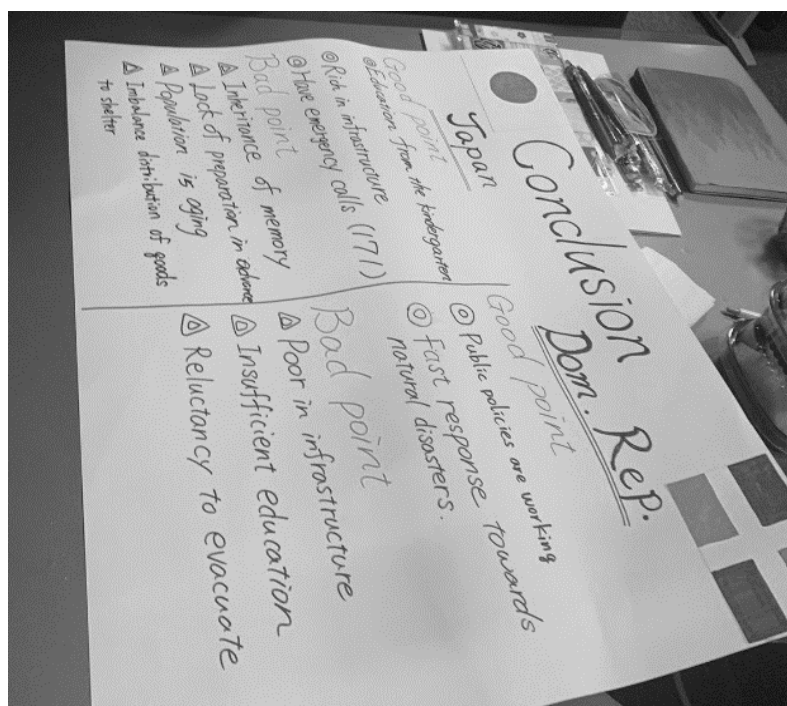 Conclusion
Japan
Good point
◎Education from the kindergarten
◎Rich in infrastructure
◎Have emergency calls (171)
Bad point
△ Inheritance of memory
△ Lack of preparation in advance
△ Population is aging
△ Imbalance distribution of goods
to shelter
Dom. Rep.
Good point
◎ Public policies are working
◎ fast response towards
natural disasters.
Bad point
△ Poor in infrastructure
△ Insufficient education
△ Reluctancy to evacuate